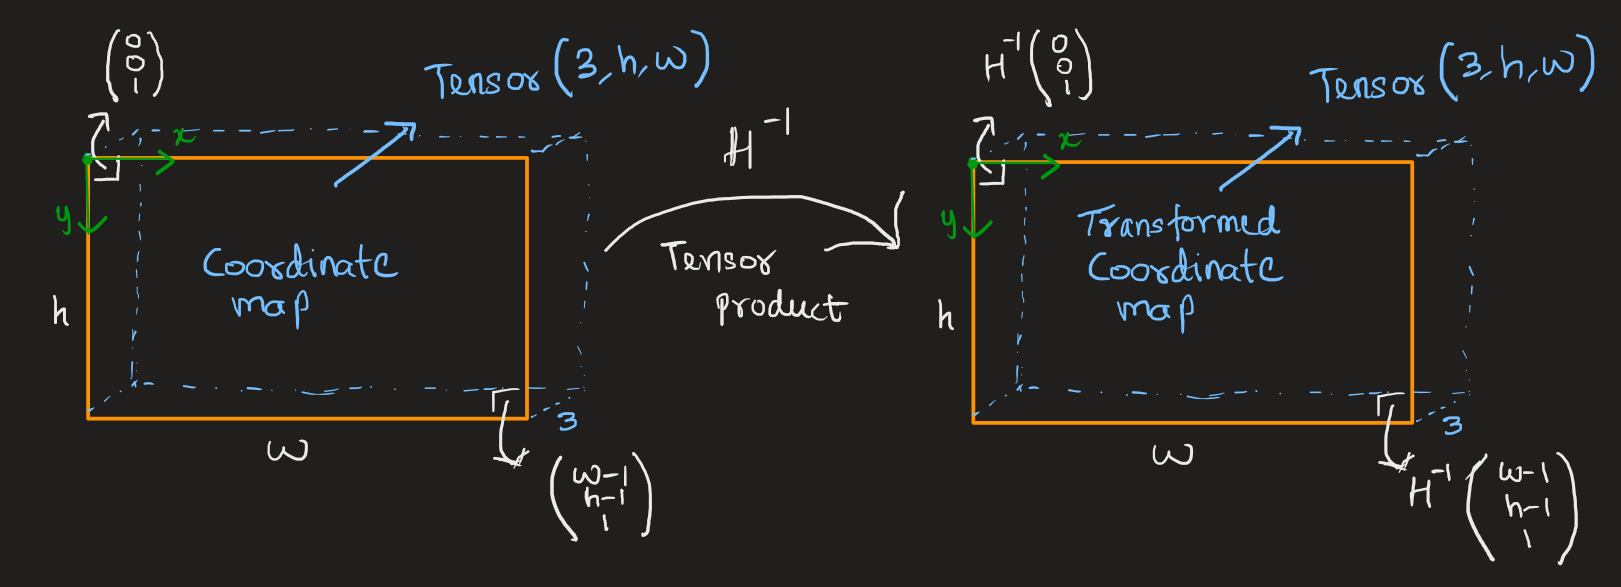 (0
0
1)
Tensor (3, h, w)
x
y
Coordinate
map
h
w
3
(w-1
h-1
1)
H⁻¹
Tensor
product
H⁻¹ (0
0
1)
Tensor (3, h, w)
x
y
Transformed
Coordinate
map
h
w
3
H⁻¹ (w-1
h-1
1)